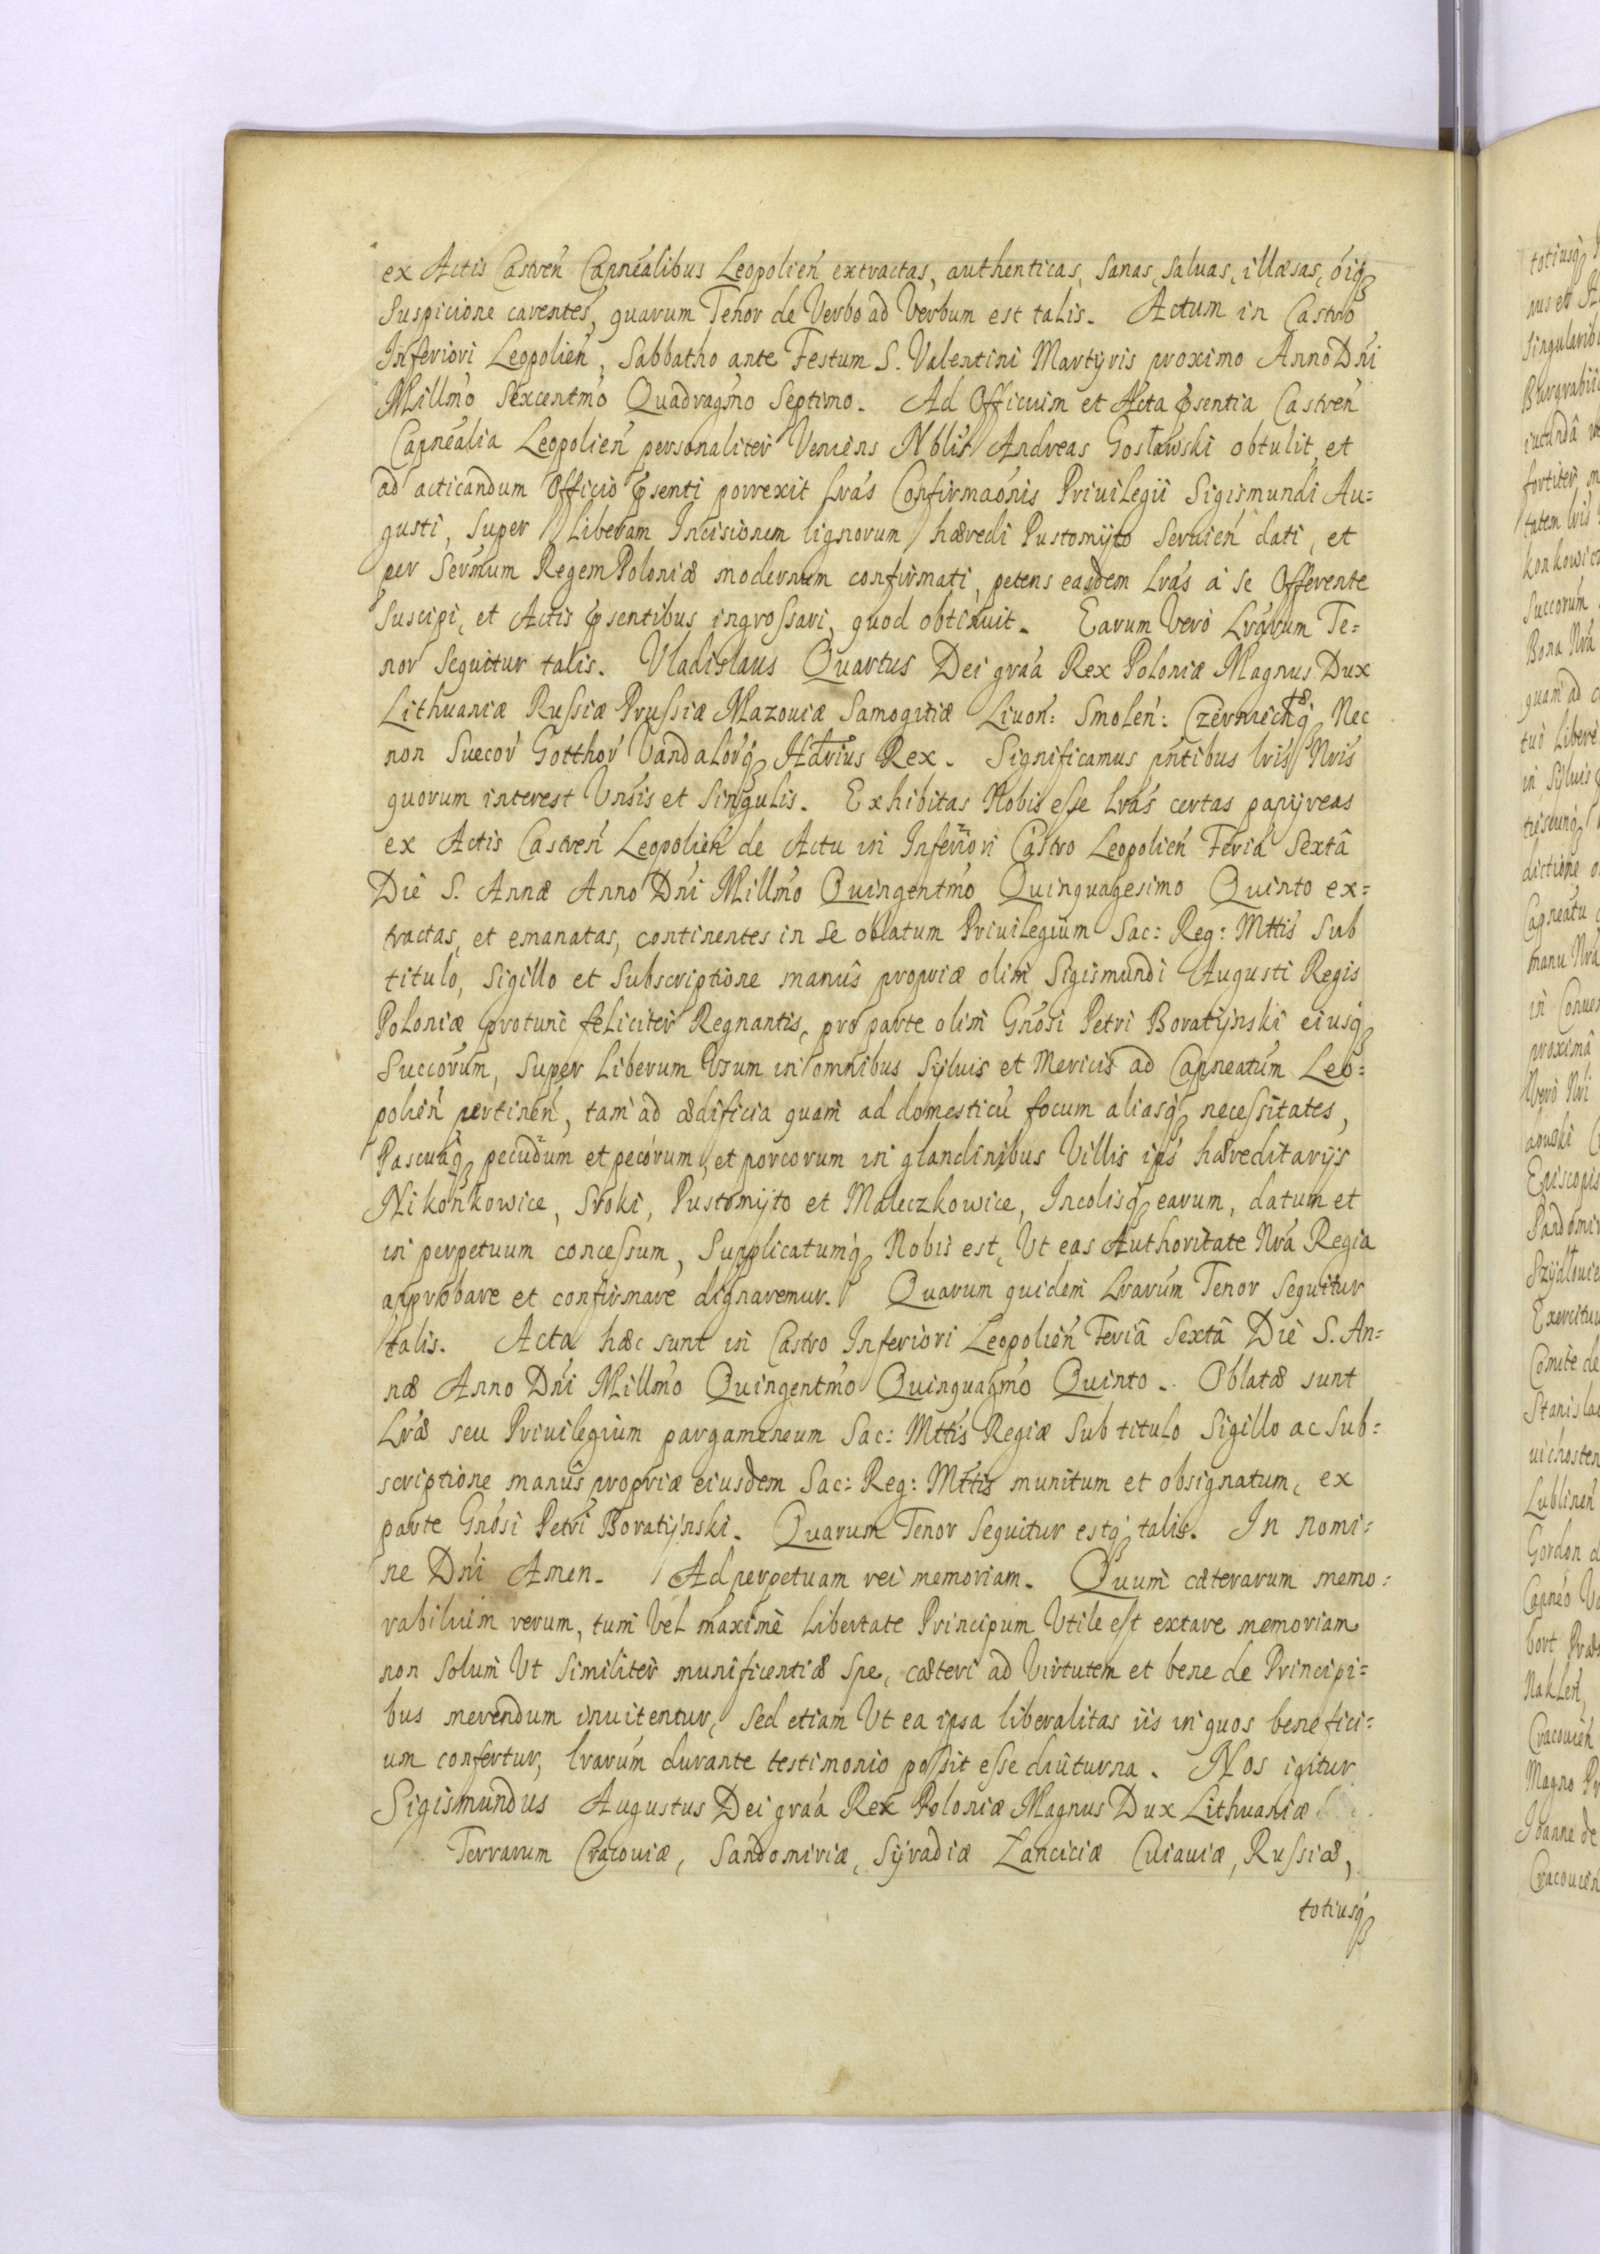 ex Actis Castreń Capnéalibus Leopolień extractas, authenticas, sanas, saluas, illæsas, óiq
Suspicione carentes, quarum Tenor de Verbo ad Verbum est talis. Actum in Castro
Inferiori Leopolień, Sabbatho ante Festum S. Valentini Martyris proximo Anno Dńi
Millmo Sexcentmo Quadragmo Septimo. Ad Officium et Acta psentia Castreń
Capnéalia Leopolień personaliter Veniens Nblis Andreas Gosławski obtulit, et
ad acticandum Officio psenti porrexit Lrás Confirmaónis Priuilegii Sigismundi Au=
gusti, Super Liberam Incisionem lignorum hæredi Pustomyto Seruień dati, et
per Sermum Regem Poloniæ modernum confirmati, petens easdem Lrás á se Offerente
Suscipi, et Actis psentibus ingrossari, quod obtinuit. Earum Vero Lrarum Te=
nor Sequitur talis. Vladislaus Quartus Dei graá Rex Poloniæ Magnus Dux
Lithuaniæ Russiæ Prussiæ Mazouiæ Samogitiæ Liuoń: Smoleń: Czerniechq Nec
non Suecor Gotthor Vandalorq Hærius Rex. Significamus pntibus lris Nris
quorum interest Vnsis et Singulis. Exhibitas Nobis esse Lrás certas papyreas
ex Actis Castreń Leopolień de Actu in Inferiori Castro Leopolień Feriâ Sextâ
Die S. Annæ Anno Dńi Millmo Quingentmo Quinquagesimo Quinto ex=
tractas, et emanatas, continentes in se oblatum Priuilegium Sac: Reg: Mttis Sub
titulo, Sigillo et Subscriptione manûs propriæ olim Sigismundi Augusti Regis
Poloniæ protunc feliciter Regnantis, pro parte olim Gnósi Petri Boratynski eiusq
Succorum, Super Liberum Vsum in omnibus Syluis et Mericis ad Capneatum Leo=
polień pertineń, tam ad ædificia quam ad domesticú focum aliasq necessitates,
Pascuaq pecudum et pecorum, et porcorum in glandinibus Villis ips hæreditarijs
Nikonkowice, Sroki, Pustomyto et Maleczkowice, Incolisq earum, datum et
in perpetuum concessum, Supplicatumq Nobis est, Vt eas Authoritate Nrá Regia
approbare et confirmare dignaremur. Quarum quidem Lrarum Tenor Sequitur
talis. Acta hæc sunt in Castro Inferiori Leopolień Feriâ Sextâ Die S. An=
næ Anno Dńi Millmo Quingentmo Quinquagmo Quinto. Oblatæ sunt
Lræ seu Priuilegium pargameneum Sac: Mttis Regiæ Sub titulo Sigillo ac Sub=
scriptione manûs propriæ eiusdem Sac: Reg: Mttis munitum et obsignatum, ex
parte Gnósi Petri Boratynski. Quarum Tenor Sequitur estq talis. In nomi=
ne Dńi Amen. Ad perpetuam rei memoriam. Quum cæterarum memo=
rabilium rerum, tum Vel maximè Libertate Principum Vtile est extare memoriam
non Solum Vt Similiter munificentiæ spe, cæteri ad Virtutem et bene de Principi=
bus merendum inuitentur, Sed etiam Vt ea ipsa liberalitas iis in quos benefici=
um confertur, lrarum durante testimonio possit esse diuturna. Nos igitur
Sigismundus Augustus Dei graá Rex Poloniæ Magnus Dux Lithuaniæ
Terrarum Cracouiæ, Sandomiriæ, Syradiæ Lanciciæ Cuiauiæ, Russiæ,
totiusq